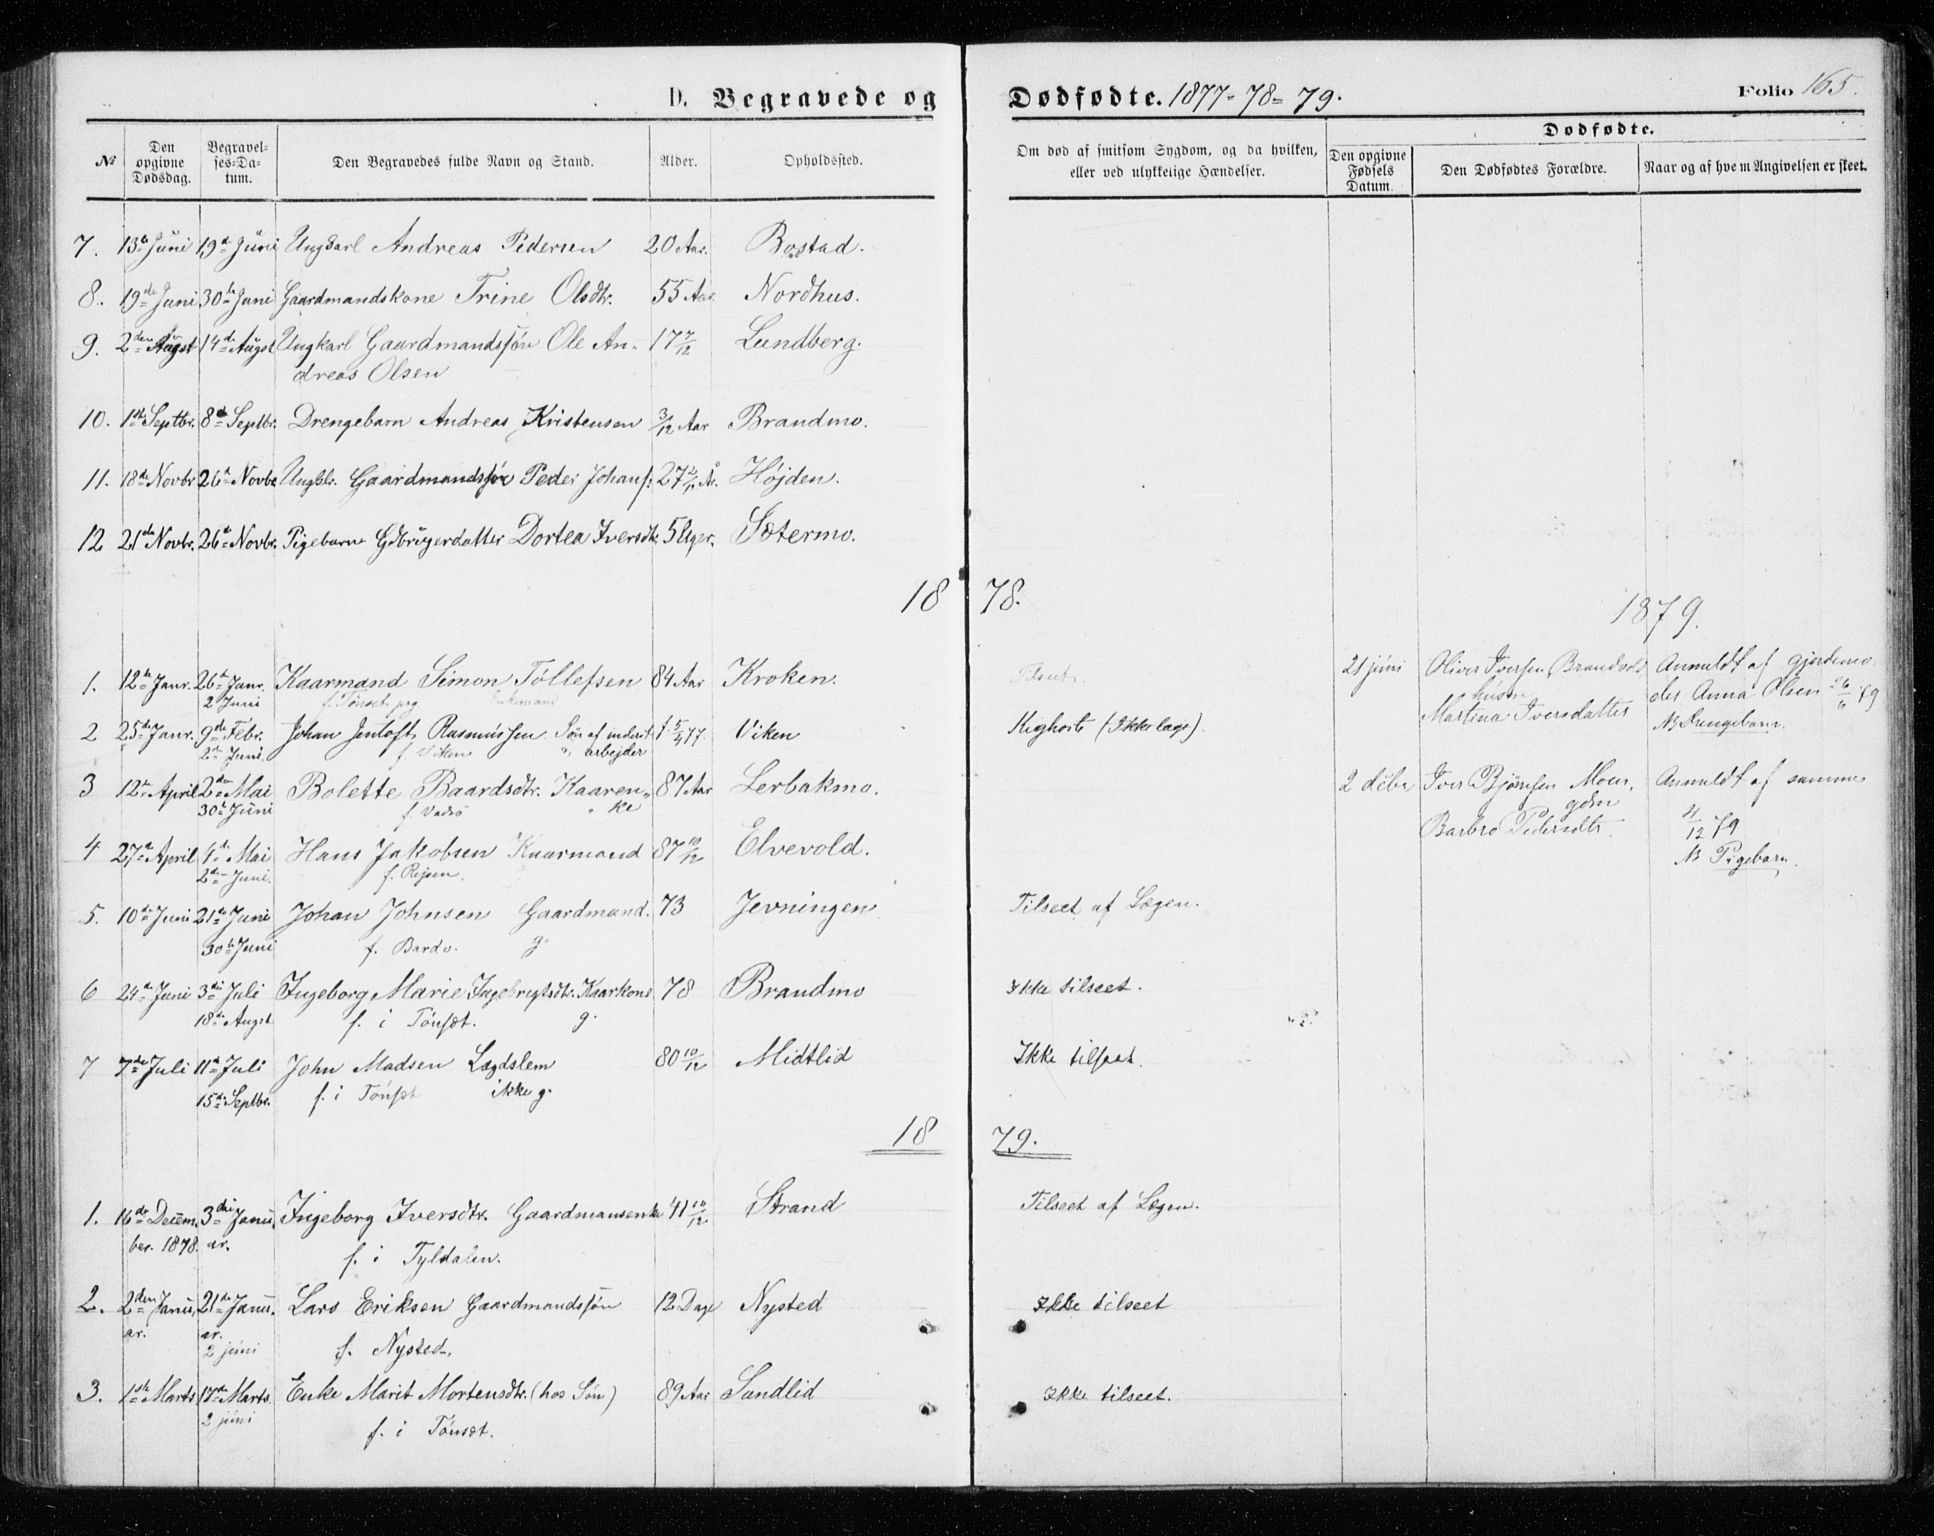 D. Begravede og Dødfødte. 1877-78-79. Folio 165.
№ Den opgivne Dødsdag. Begravelses-Datum. Den Begravedes fulde Navn og Stand. Alder. Opholdssted. Om død af smitsom Sygdom, og da hvilken, eller ved ulykkelige Hændelser. Dødfødte. Den opgivne Fødsels Datum. Den Dødfødtes Forældre. Naar og af hvem Angivelsen er skeet.
7. 13de Juni 19de Juni Ungkarl Andreas Pedersen 20 Aar. Bostad.
8. 19de Juni 30te Juni Gaardmandskone Trine Olsdtr. 55 Aar Nordhus.
9. 2den Augst 14de Augst Ungkarl Gaardmandssøn Ole An- 17 7/12 Lundberg.
dreas Olsen
10. 1ste Septbr. 8de Septbr. Drengebarn Andreas Kristensen 3/12 Aar Brandmo.
11. 18de Novbr 26de Novbr Ungkl. Gaardmandssøn Peder Johans: 27 Højden.
12 21de Novbr. 26de Novbr. Pigebarn Gdbrugerdatter Dortea Iversdt. 5 Uger. Sætermo.
18 78.
1879.
1. 12te Janr. 26de Janr. Kaarmand Simon Tollefsen 84 Aar Kroken. Tilseet.
2 Juni f. Tønset Enkemand
21 juni Oliver Iversen Brandvold Anmeldt af gjordemo
husm der Anna Olsen 26/6 79
Martina Iversdatter NB Drengebarn.
2 25de Janr. 9de Febr. Johan Jentoft Rasmussen Søn af inderst 5/4 77. Viken Kighoste (Ikke læge).
2de Juni. f. Viken arbejder
3 12te April 2den Mai Bolette Baardsdtr. Kaaren- 87 Aar Lerbakmo.
30te Juni f. Vadsø ke
2 decbr Iver Bjørnsen Moen, Anmeldt af samme
gdm 4/12 79
Barbro Pedersdtr. NB Pigebarn.
4 27de April 4de Mai Hans Jakobsen Kaarmand 87 10/12 Elvevold.
2den Juni. f. Rejsen.
5. 10de Juni 21de Juni Johan Johnsen Gaardmand. 73 Jevningen Tilseet af Lægen.
30te Juni f. Bardo. g.
6 24de Juni 3die Juli Ingeborg Marie Ingebrigtsdtr. Kaarkone 78 Brandmo Ikke tilseet.
18de Augst f. i Tønsæt. g.
7 7de Juli 11te Juli John Madsen Lægdslem 80 10/12 Midtlid Ikke tilseet.
15de Septbr. f. i Tønsæt ikke g.
18 79.
1. 16de Decem- 3die Janu- Ingeborg Iversdtr. Gaardmansenke 41 10/12 Strand Tilseet af Lægen.
ber. 1878. ar. f. i Tyldalen.
2. 2den Janu- 21de Janu- Lars Eriksen Gaardmandssøn 12 Dage Nysted Ikke tilseet
ar. ar.
2 juni f. Nysted.
3. 1ste Marts 17de Marts. Enke Marit Mortensdtr. (hos Søn) 89 Aar Sandlid Ikke tilseet.
2 juni f. i Tønsæt.